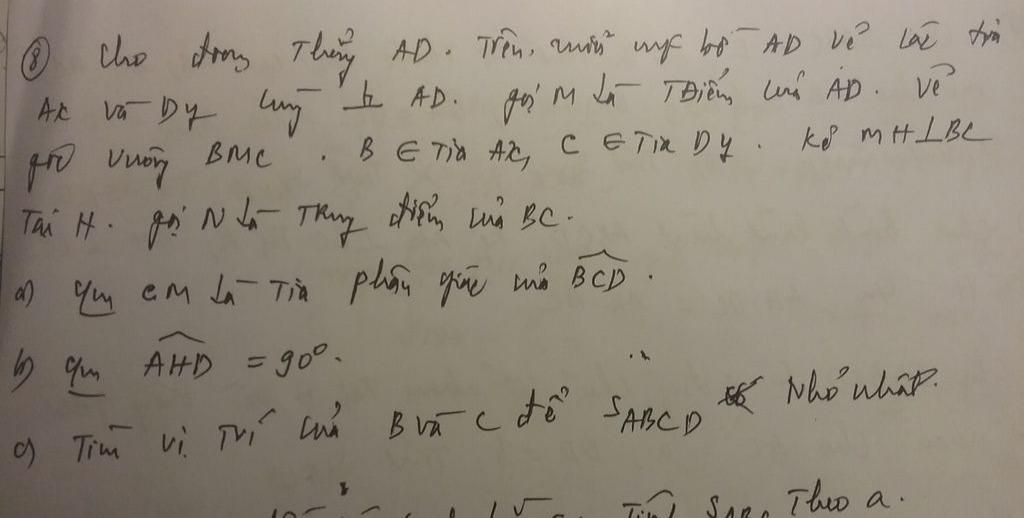 ⑧ Cho đoạn Thẳng AD. Trên nửa mf bờ AD vẽ các tia
Ax và Dy cùng ⊥ AD. gọi M là TĐiểm của AD. Vẽ
góc vuông BMC. B ∈ Tia Ax, C ∈ Tia Dy. kẻ MH⊥BC
Tại H. gọi N là Trung điểm của BC.
a) CM là Tia phân giác của \widehat{BCD}.
b) \widehat{AHD} = 90°.
c) Tìm vị Trí của B và C để S_{ABCD} Nhỏ nhất.
Theo a.